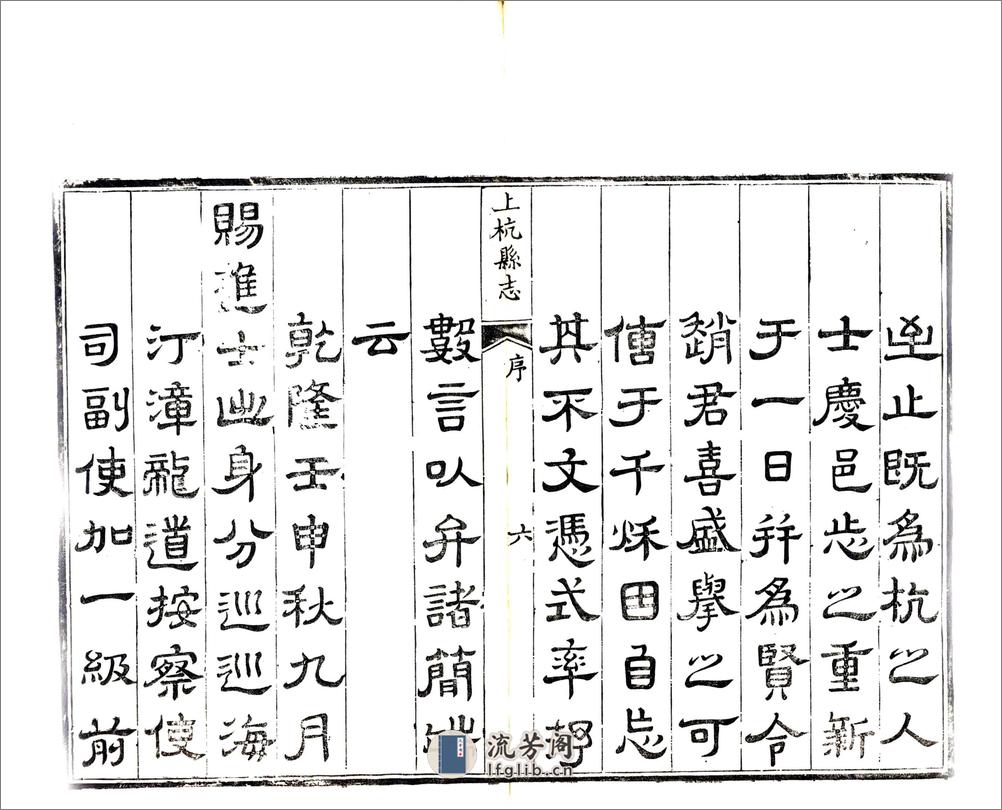 止既為杭之人
士慶邑志之重新
于一日并為賢令
趙君喜盛舉之可
傳于千秌因自忘
其不文憑式率
上杭縣志 序 六
數言以弁諸簡端
云
乾隆壬申秋九月
賜進士出身分巡巡海
汀漳龍道按察使
司副使加一級前
流芳阁
lfglib.cn